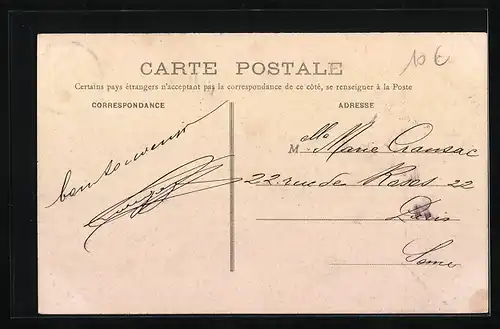 10 €
CARTE POSTALE
Certains pays étrangers n'acceptant pas la correspondance de ce côté, se renseigner à la Poste
CORRESPONDANCE
ADRESSE
bon souvenir
Melle Marie Cransac
22 rue des Roses 22
Paris